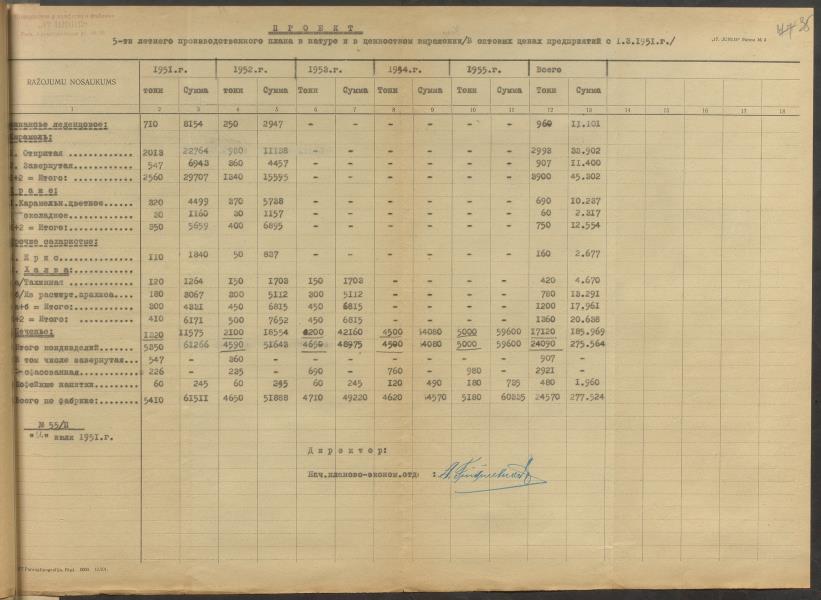 ПРОЕКТ
5-ти летнего производственного плана в натуре и в ценностном выражении/в оптовых ценах предприятий с 1.3.1951.г./
RAŽOJUMU NOSAUKUMS 1951.г. 1952.г. 1953.г. 1954.г. 1955.г. Всего
тонн Сумма тонн Сумма тонн Сумма тонн Сумма тонн Сумма тонн Сумма
1 2 3 4 5 6 7 8 9 10 11 12 13 14 15 16 17 18
леденцовое: 710 8154 250 2947 - - - - - - 960 11.101
Карамель:
Открытая 2013 22764 980 11138 - - - - - - 2993 33.902
2. Завернутая 547 6943 360 4457 - - - - - - 907 11.400
1+2 = Итого: 2560 29707 1340 15595 - - - - - - 3900 45.302
Драже:
1.Карамельн.цветное 320 4499 370 5738 - - - - - - 690 10.237
шоколадное 30 1160 30 1157 - - - - - - 60 2.317
1+2 = Итого: 350 5659 400 6895 - - - - - - 750 12.554
Прочие сахаристые:
Ирис 110 1840 50 837 - - - - - - 160 2.677
Халва:
а/Тахинная 120 1264 150 1703 150 1703 - - - - 420 4.670
б/Из растирт.арахиса 180 3067 300 5112 300 5112 - - - - 780 13.291
а+б = Итого: 300 4331 450 6815 450 6815 - - - - 1200 17.961
1+2 = Итого: 410 6171 500 7652 450 6815 - - - - 1360 20.638
Печенье: 1320 11575 2100 18554 4200 42160 4500 54080 5000 59600 17120 185.969
Итого кондизделий 5350 61266 4590 51643 4650 48975 4500 54080 5000 59600 24090 275.564
В том числе завернутая 547 - 360 - - - - - - - 907 -
Расфасованная 226 - 225 - 690 - 760 - 980 - 2921 -
Кофейные напитки 60 245 60 245 60 245 120 490 180 735 480 1.960
Всего по фабрике: 5410 61511 4650 51888 4710 49220 4620 54570 5180 60335 24570 277.524
№ 55/П
июля 1951.г.
Директор:
Нач.планово-эконом.отд :